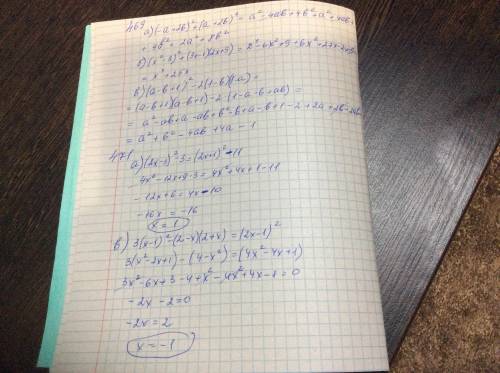 469
а) (-a+2b)²+(a+2b)² = a²-4ab+4b²+a²+4ab+
+4b² = 2a²+8b²
= x³+25x
в) (a-b+1)²-2(1-b)(1-a) =
= (a-b+1)(a-b+1)-2(1-a-b+ab) =
= a²-ab+a-ab+b²-b+a-b+1-2+2a+2b-2ab
= a²+b²-4ab+4a-1
471
а) (2x-3)²-3=(2x+1)²-11
4x²-12x+9-3=4x²+4x+1-11
-12x+6=4x-10
-16x=-16
x=1
в) 3(x-1)²-(2-x)(2+x)=(2x-1)²
3(x²-2x+1)-(4-x²)=(4x²-4x+1)
3x²-6x+3-4+x²-4x²+4x-1=0
-2x-2=0
-2x=2
x=-1